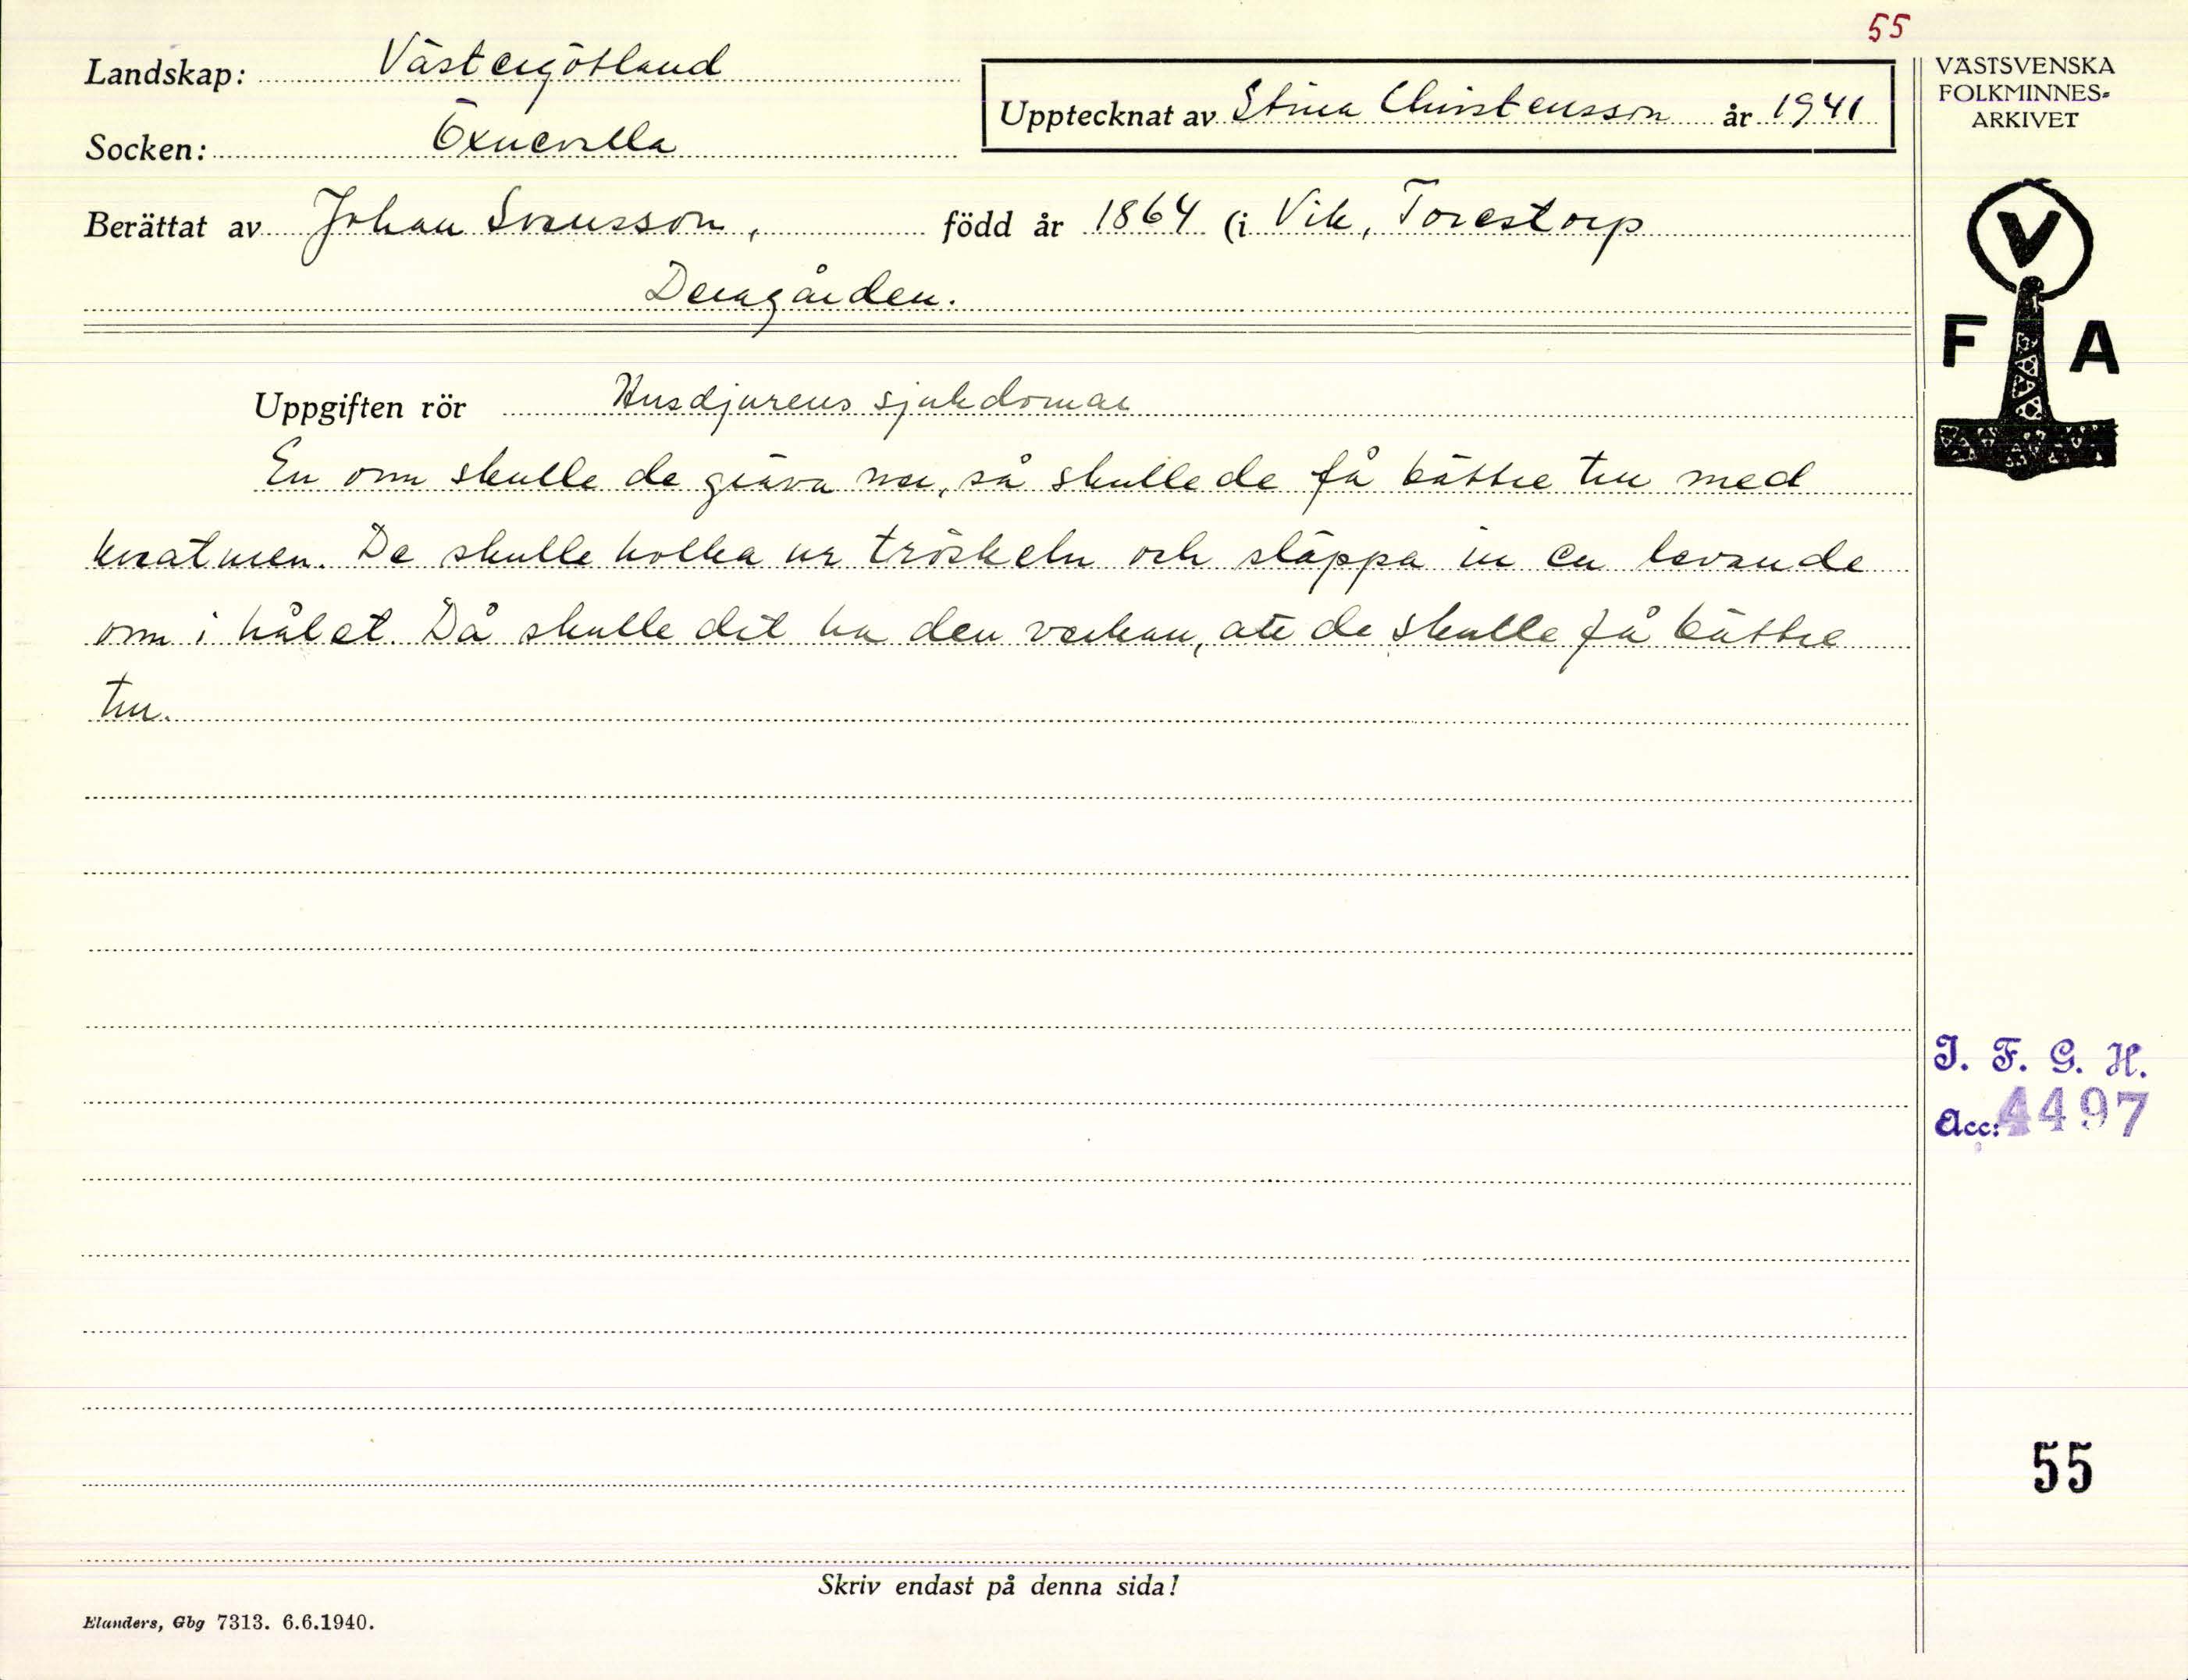 55
Landskap: Västergötland
Socken: Öxnevalla
Upptecknat av Stina Christensson år 1941
Berättat av Johan Svensson, född år 1864 (i Vik, Torestorp
Deragården.
VÄSTSVENSKA
FOLKMINNES-
ARKIVET
V
F A
Uppgiften rör Husdjurens sjukdomar
En orm skulle de gräva ner, så skulle de få bättre tur med
kreaturen. De skulle holka ur tröskeln och släppa in en levande
orm i hålet. Då skulle det ha den verkan, att de skulle få bättre
tur.
I. F. G. H.
Acc: 4497
55
Skriv endast på denna sida!
Elanders, Gbg 7313. 6.6.1940.